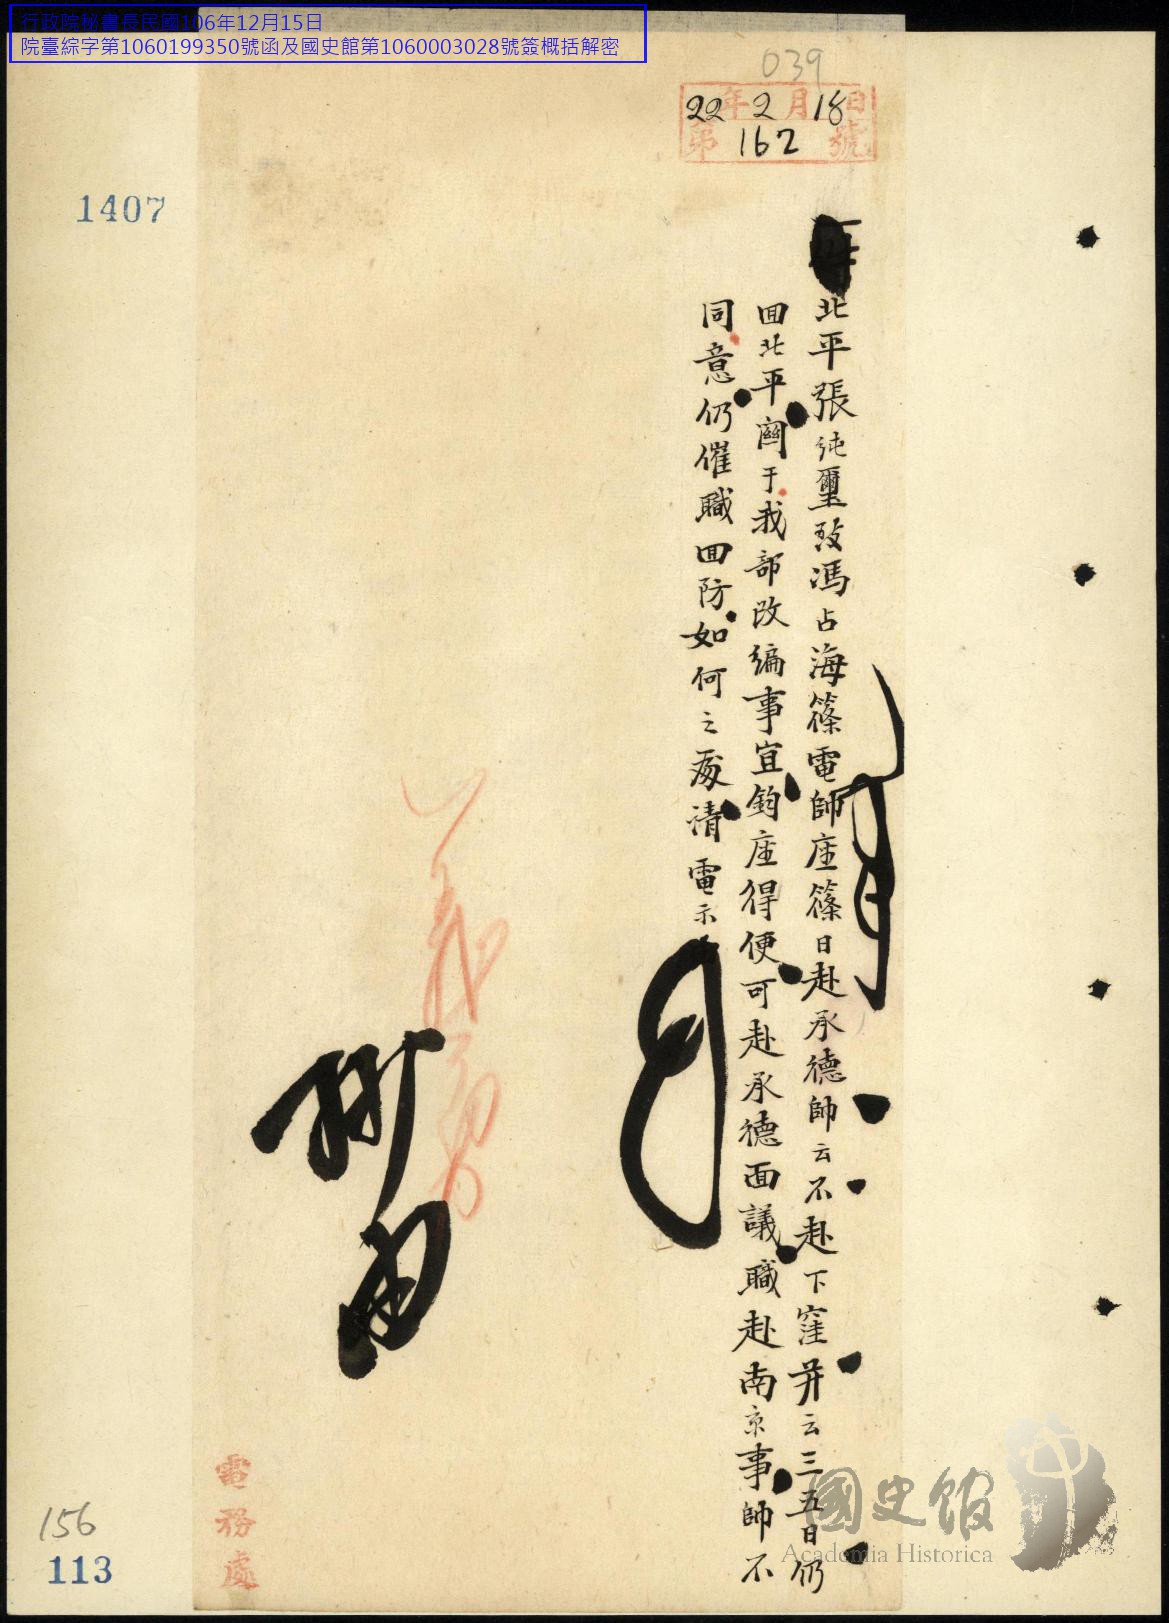 行政院秘書長民國106年12月15日
院臺綜字第1060199350號函及國史館第1060003028號簽概括解密
039
22年2月18日
第162號
1407
北平張純璽致馮占海篠電帥座篠日赴承德帥云不赴下窪并云三五日仍
回北平關于我部改編事宜鈞座得便可赴承德面議職赴南京事帥不
同意仍催職回防如何之處請電示
義勇
電務處
156
113
國史館
Academia Historica